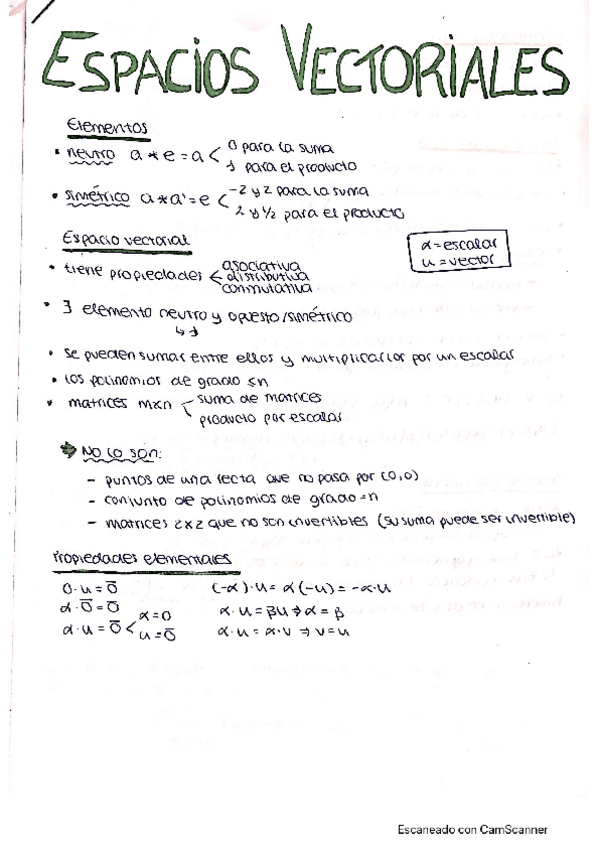 ESPACIOS VECTORIALES
Elementos
• neutro a * e = a < 0 para la suma
1 para el producto
• simétrico a * a' = e < -2 y 2 para la suma
2 y 1/2 para el producto
Espacio vectorial
α = escalar
u = vector
• tiene propiedades < asociativa
distributiva
conmutativa
• ∃ elemento neutro y opuesto/simétrico
↳ 1
• se pueden sumar entre ellos y multiplicarlos por un escalar
• los polinomios de grado ≤n
• matrices mxn < suma de matrices
producto por escalar
➔ No lo son:
- puntos de una recta que no pasa por (0,0)
- conjunto de polinomios de grado =n
- matrices 2x2 que no son invertibles (su suma puede ser invertible)
Propiedades elementales
0·u = 0̅ (-α)·u = α(-u) = -α·u
α·0̅ = 0̅ α·u = βu ⇒ α = β
α·u = 0̅ < α=0
u=0̅ α·u = α·v ⇒ v=u
Escaneado con CamScanner